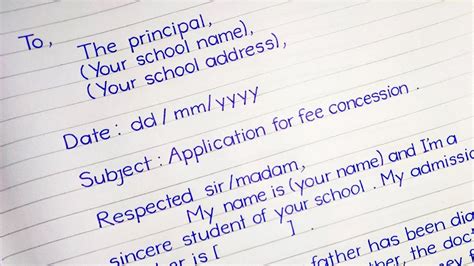 To,
The principal,
(Your school name),
(Your school address),
Date : dd / mm/ yyyy
Subject : Application for fee concession .
Respected sir /madam,
My name is (your name) and I'm a
sincere student of your school . My admissio
is [ ] .
father has been dia
the doc